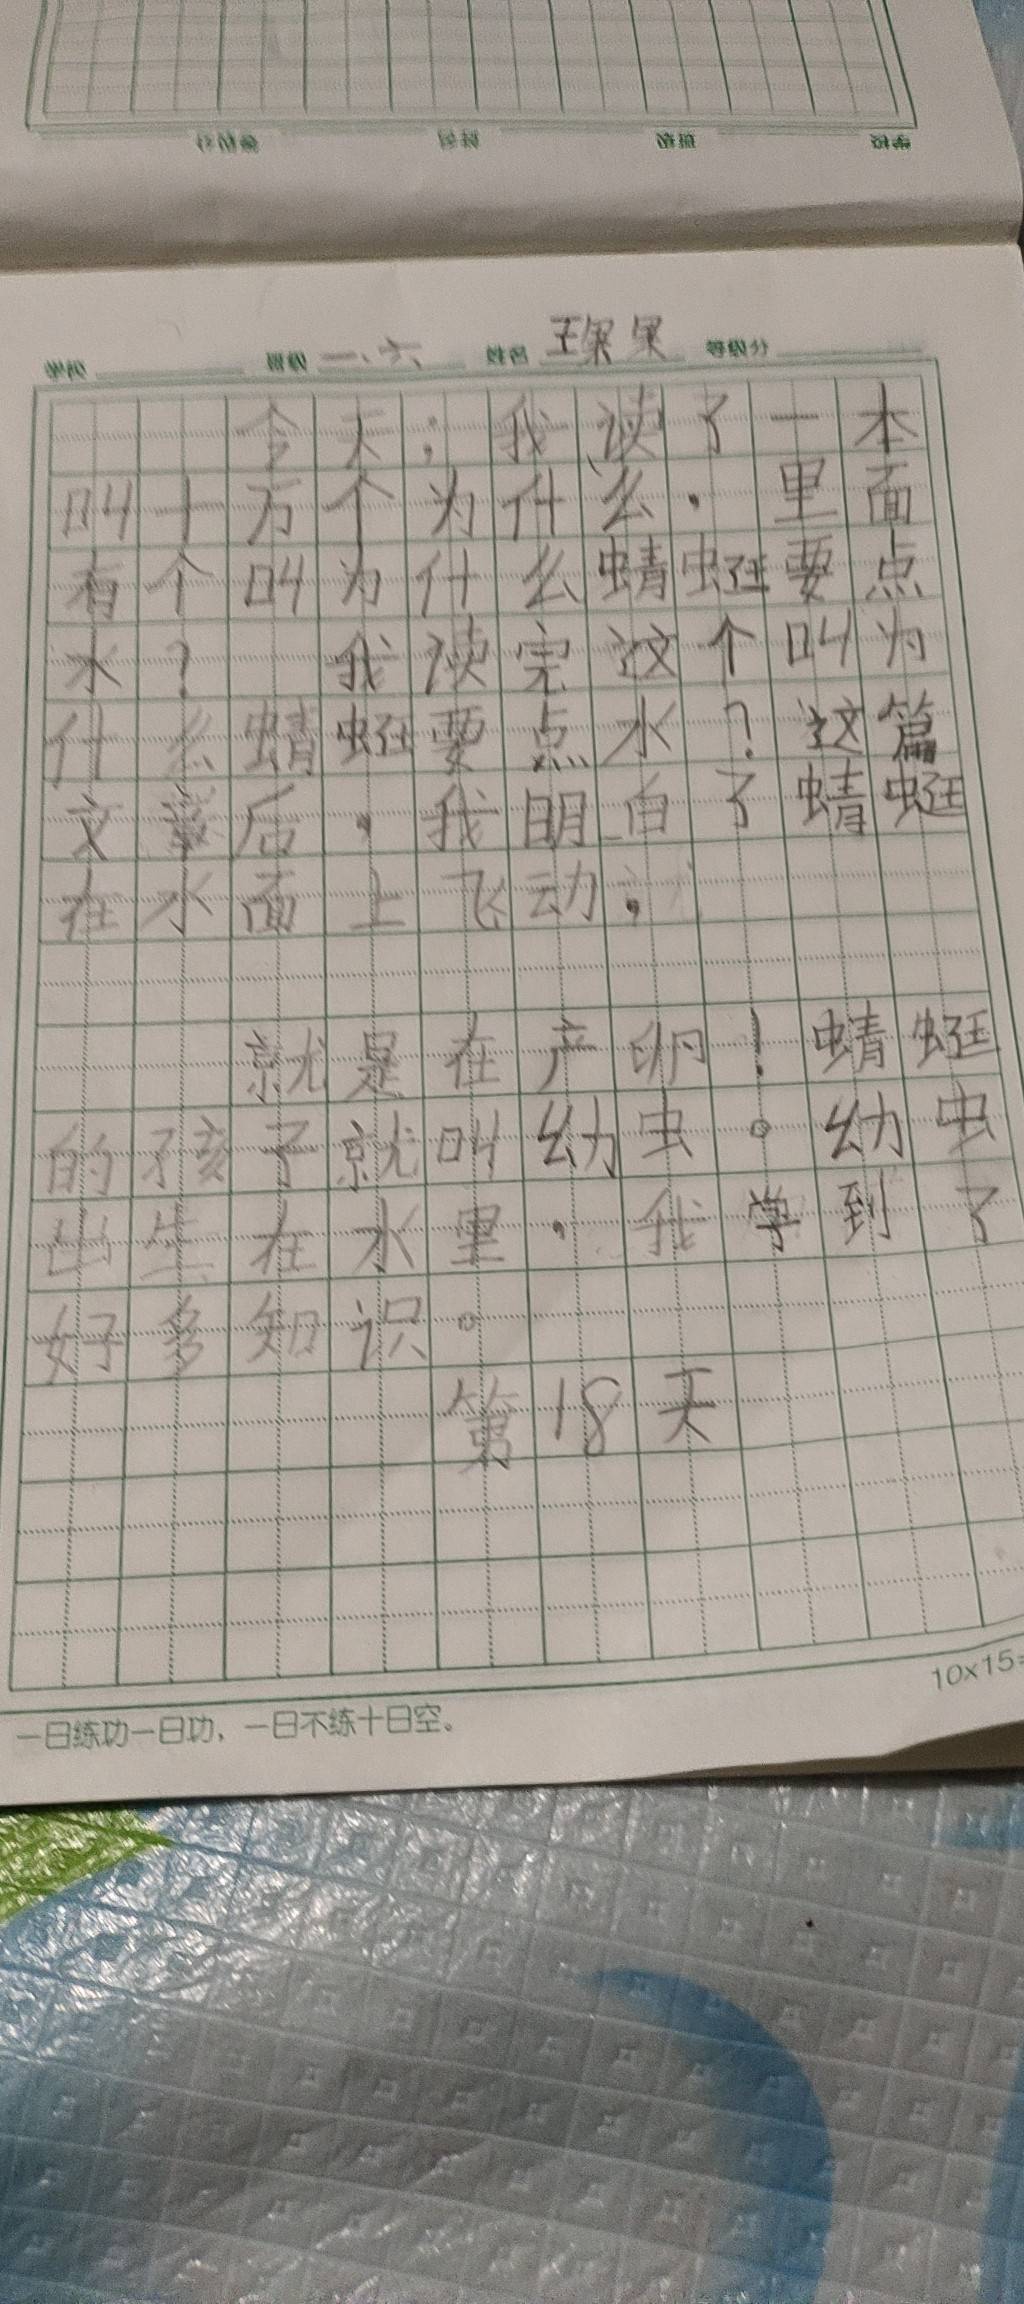 学校 班级 姓名 等级分
学校 班级 一、六、 姓名 王果果 等级分
今天，我读了一本
叫十万个为什么．里面
有个叫为什么蜻蜓要点
水？ 我读完这个叫为
什么蜻蜓要点水？这篇
文章后，我明白了蜻蜓
在水面上飞动，
就是在产卵！蜻蜓
的孩子就叫幼虫。幼虫
出生在水里，我学到了
好多知识。
第18天
10×15=
一日练功一日功，一日不练十日空。